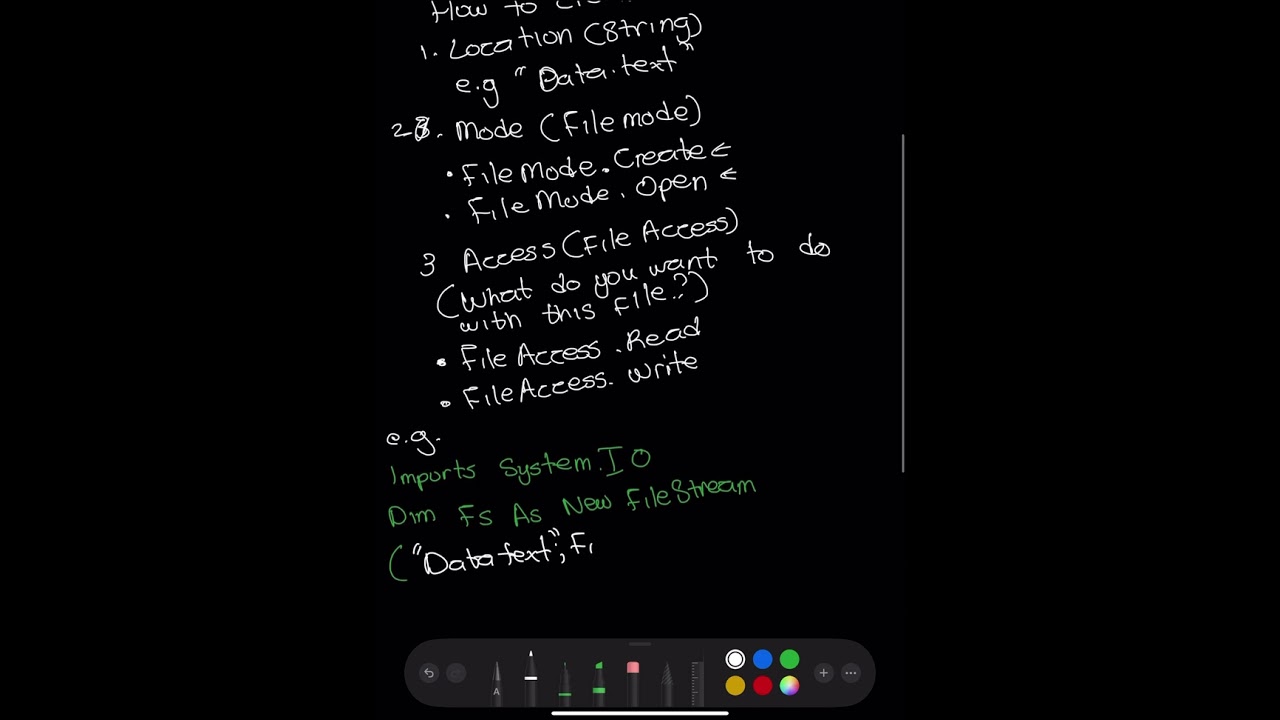 How to
1. Location (String)
e.g "Data.text"
2. Mode (Filemode)
• FileMode.Create ←
• FileMode.Open ←
3 Access (File Access)
(What do you want to do
with this File?)
• FileAccess.Read
• FileAccess.Write
e.g.
Imports System.IO
Dim Fs As New FileStream
("Data text", Fi
A